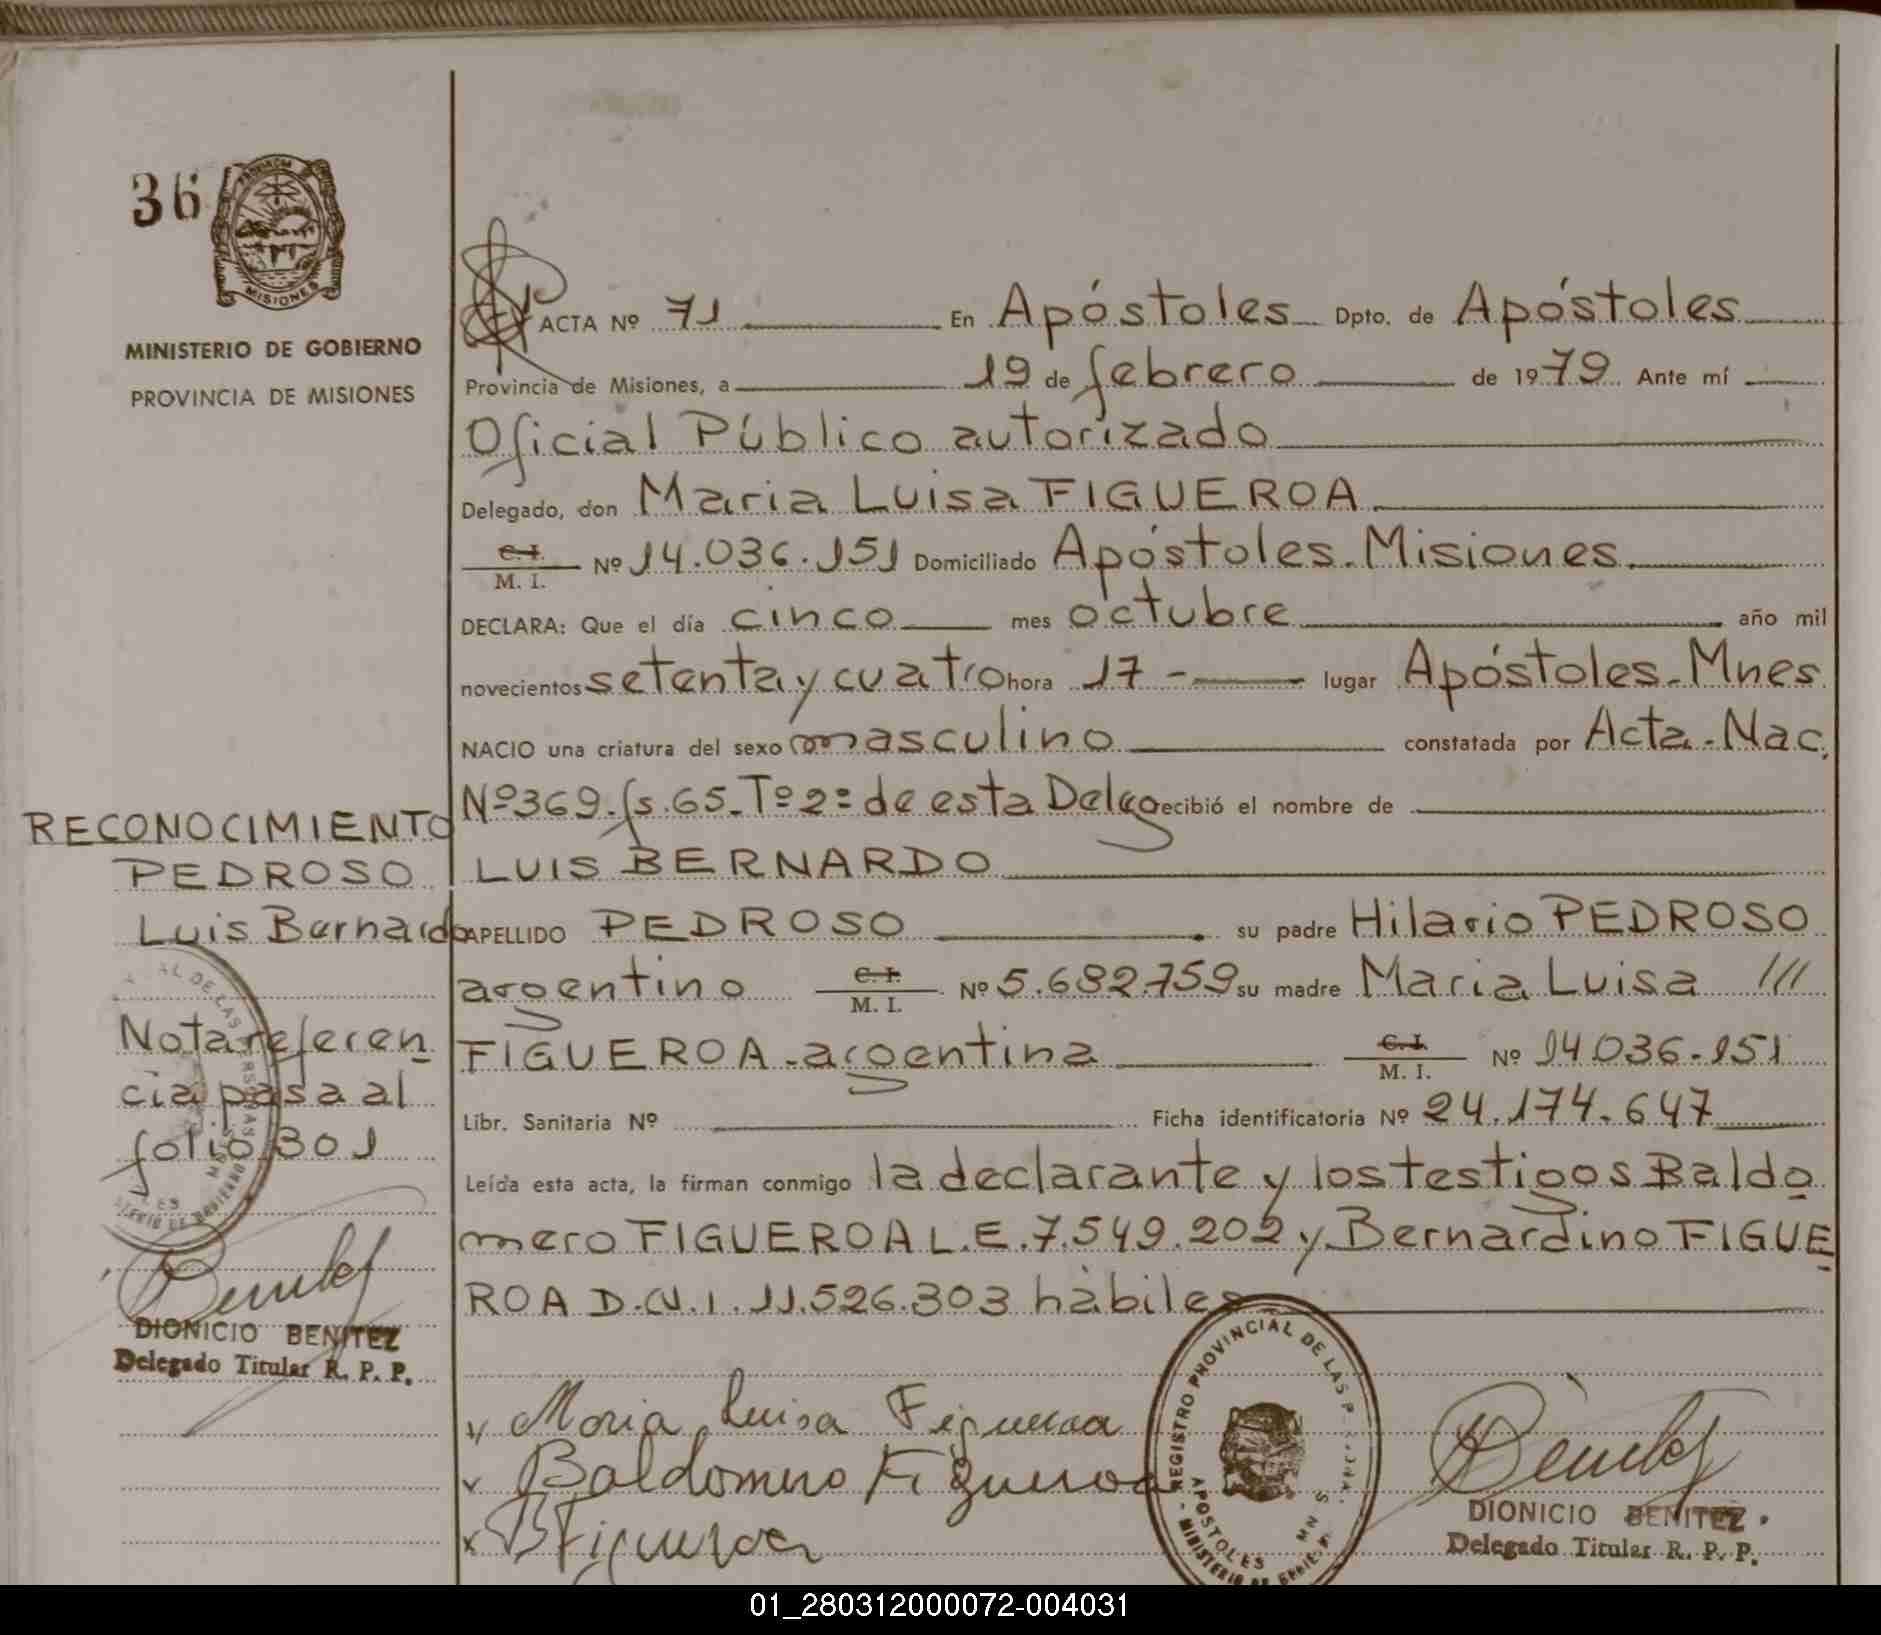 36
PROVINCIA
MISIONES
MINISTERIO DE GOBIERNO
PROVINCIA DE MISIONES
RECONOCIMIENTO
PEDROSO
Luis Bernardo
Nota referen
cia pasa al
folio 301
DIONICIO BENITEZ
Delegado Titular R. P. P.
ACTA Nº 71 En Apóstoles Dpto. de Apóstoles
Provincia de Misiones, a 19 de febrero de 1979 Ante mí
Oficial Público autorizado
Delegado, don Maria Luisa FIGUEROA
C. I. / M. I. Nº 14.036.151 Domiciliado Apóstoles. Misiones.
DECLARA: Que el día cinco mes octubre año mil
novecientos setenta y cuatro hora 17 - lugar Apóstoles-Mnes
NACIO una criatura del sexo masculino constatada por Acta. Nac.
Nº 369. fs. 65. Tº 2º de esta Deleg recibió el nombre de
LUIS BERNARDO
APELLIDO PEDROSO su padre Hilario PEDROSO
argentino C. I. / M. I. Nº 5.682.759 su madre Maria Luisa ///
FIGUEROA - argentina C. I. / M. I. Nº 14.036.151
Libr. Sanitaria Nº Ficha identificatoria Nº 24.174.647
Leída esta acta, la firman conmigo la declarante y los testigos Baldo
mero FIGUEROA L.E. 7.549.202 y Bernardino FIGUE
ROA D.N.I. 11.526.303 hàbiles
Maria Luisa Figueroa
Baldomero Figueroa
B Figueroa
REGISTRO PROVINCIAL DE LAS P
APOSTOLES MNS
MINISTERIO DE
DIONICIO BENITEZ
Delegado Titular R. P. P.
01_280312000072-004031